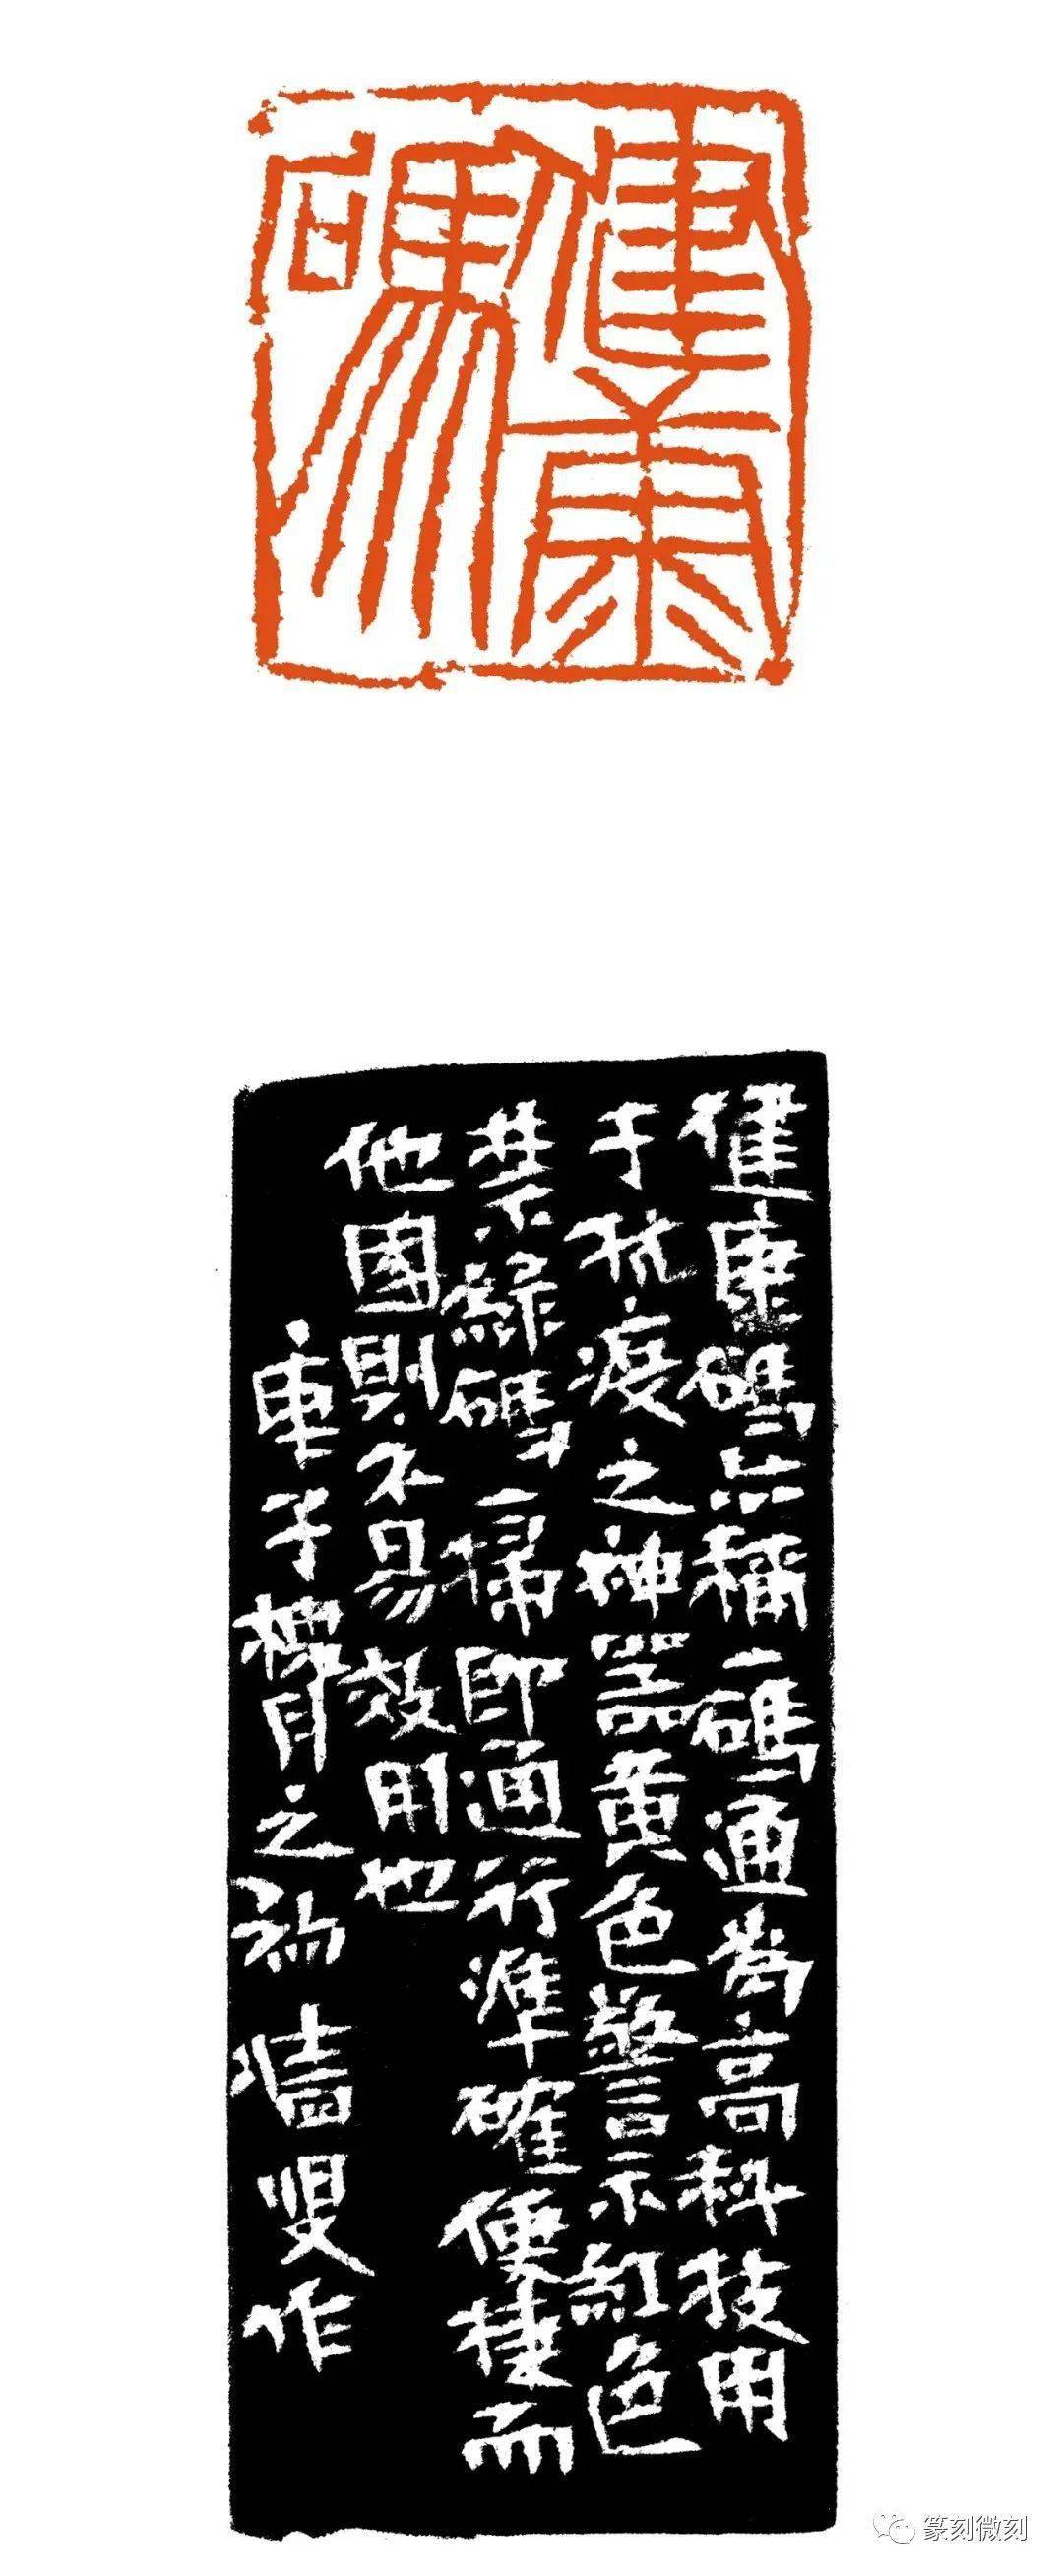 健康碼
健康碼亦稱一碼通為高科技用
于抗疫之神器黃色警示紅色
禁綠碼一掃即通行準確便捷而
他國則不易效用也
庚子橅月之初牆叟作
篆刻微刻